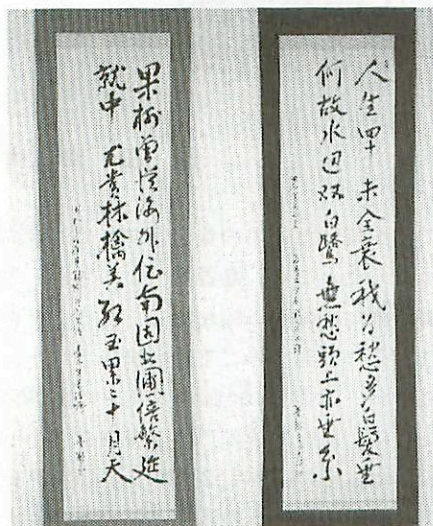 人生四十未全衰我为愁多白髪垂
何故水辺双白鷺無愁頭上亦垂糸
果樹曽従海外伝南出圃倍繁延
就中尤貴林檎美紅玉累々十月天